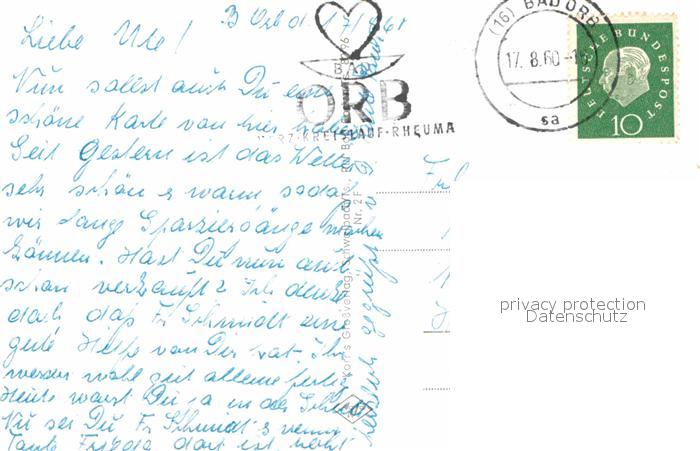 B Orb d 17/8 60
Liebe Ute!
Nun sollst auch Du eine
schöne Karte von hier haben
Seit Gestern ist das Wetter
sehr schön & warm, sodaß
wir lange Spaziergänge machen
können. Hast Du nun auch
schon verkauft? Ich denke
doch daß Fr Schmidt eine
gute Hilfe von Dir hat. Ihr
werdet wohl gut alleine fertig
Heute warst Du ja in der Schule
Nu sei Du Fr Schmidt & wenn
Tante Frieda dort ist, recht
herzlich gegrüßt v
BAD
ORB
HERZ·KREISLAUF·RHEUMA
(16) BAD ORB
17.8.60
sa
DEUTSCHE BUNDESPOST
10
Korr's Großverlag, Schwalbach/Ts., BN Bestell
Nr. 2 F
privacy protection
Datenschutz